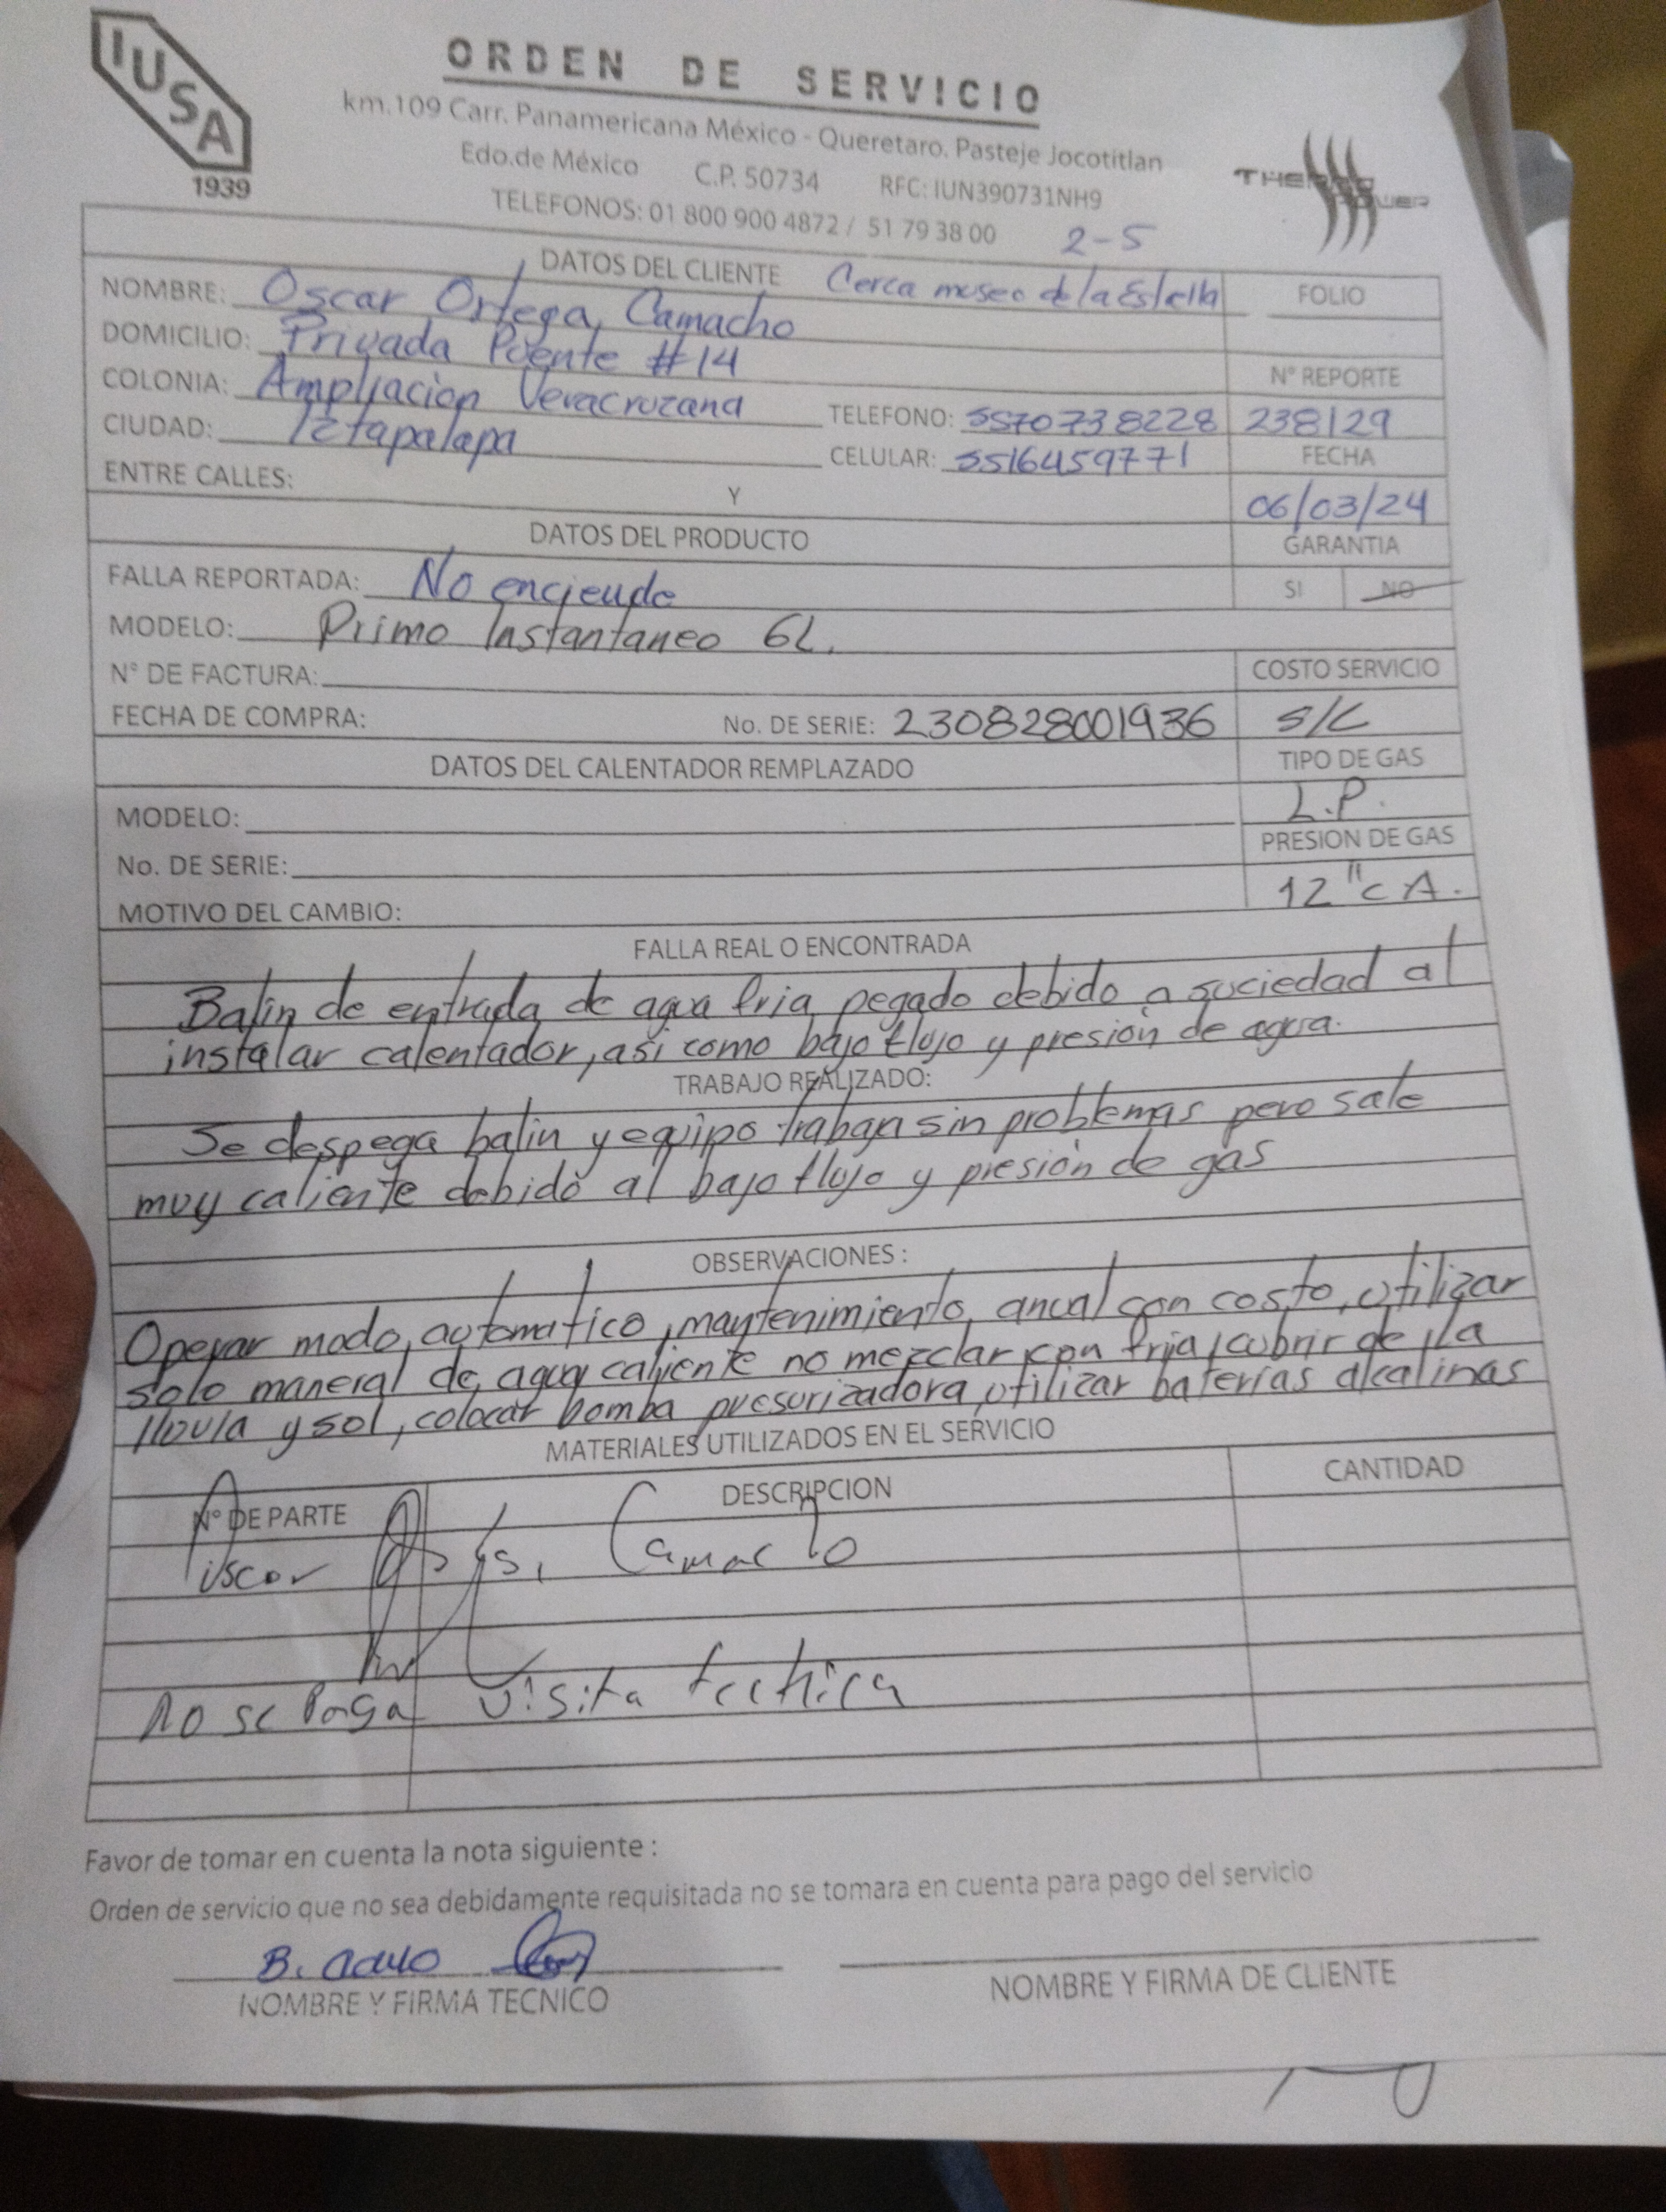 IUSA
1939
ORDEN DE SERVICIO
km.109 Carr. Panamericana México - Queretaro. Pasteje Jocotitlan
Edo.de México C.P. 50734 RFC: IUN390731NH9
TELEFONOS: 01 800 900 4872 / 51 79 38 00
THERMO POWER
2-5
DATOS DEL CLIENTE Cerca museo de la Estrella
FOLIO
NOMBRE: Oscar Ortega Camacho
DOMICILIO: Privada Puente #14
N° REPORTE
COLONIA: Ampliacion Veracruzana TELEFONO: 5570738228 238129
CIUDAD: Iztapalapa CELULAR: 5516459771 FECHA
ENTRE CALLES: Y 06/03/24
DATOS DEL PRODUCTO GARANTIA
FALLA REPORTADA: No enciende SI NO
MODELO: Primo Instantaneo 6L.
N° DE FACTURA: COSTO SERVICIO
FECHA DE COMPRA: No. DE SERIE: 230828001936 S/C
DATOS DEL CALENTADOR REMPLAZADO TIPO DE GAS
L.P.
MODELO: PRESION DE GAS
No. DE SERIE: 12"cA.
MOTIVO DEL CAMBIO:
FALLA REAL O ENCONTRADA
Balin de entrada de agua fria pegado debido a suciedad al
instalar calentador, asi como bajo flujo y presión de agua.
TRABAJO REALIZADO:
Se despega balin y equipo trabaja sin problemas pero sale
muy caliente debido al bajo flujo y presión de gas
OBSERVACIONES :
Operar modo automatico, mantenimiento anual con costo, utilizar
solo maneral de agua caliente no mezclar con fria, cubrir de la
lluvia y sol, colocar bomba presurizadora, utilizar baterias alcalinas
MATERIALES UTILIZADOS EN EL SERVICIO
N° DE PARTE DESCRIPCION CANTIDAD
Oscar Camacho
no se Paga visita tecnica
Favor de tomar en cuenta la nota siguiente :
Orden de servicio que no sea debidamente requisitada no se tomara en cuenta para pago del servicio
B.
NOMBRE Y FIRMA TECNICO NOMBRE Y FIRMA DE CLIENTE